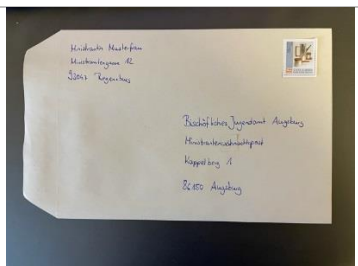 Ministrantin Musterfrau
Ministrantengasse 12
Regenthas
Bischöfliches Jugendamt Augsburg
Ministrantenweihnachtspost
Kappelberg 1
86150 Augsburg